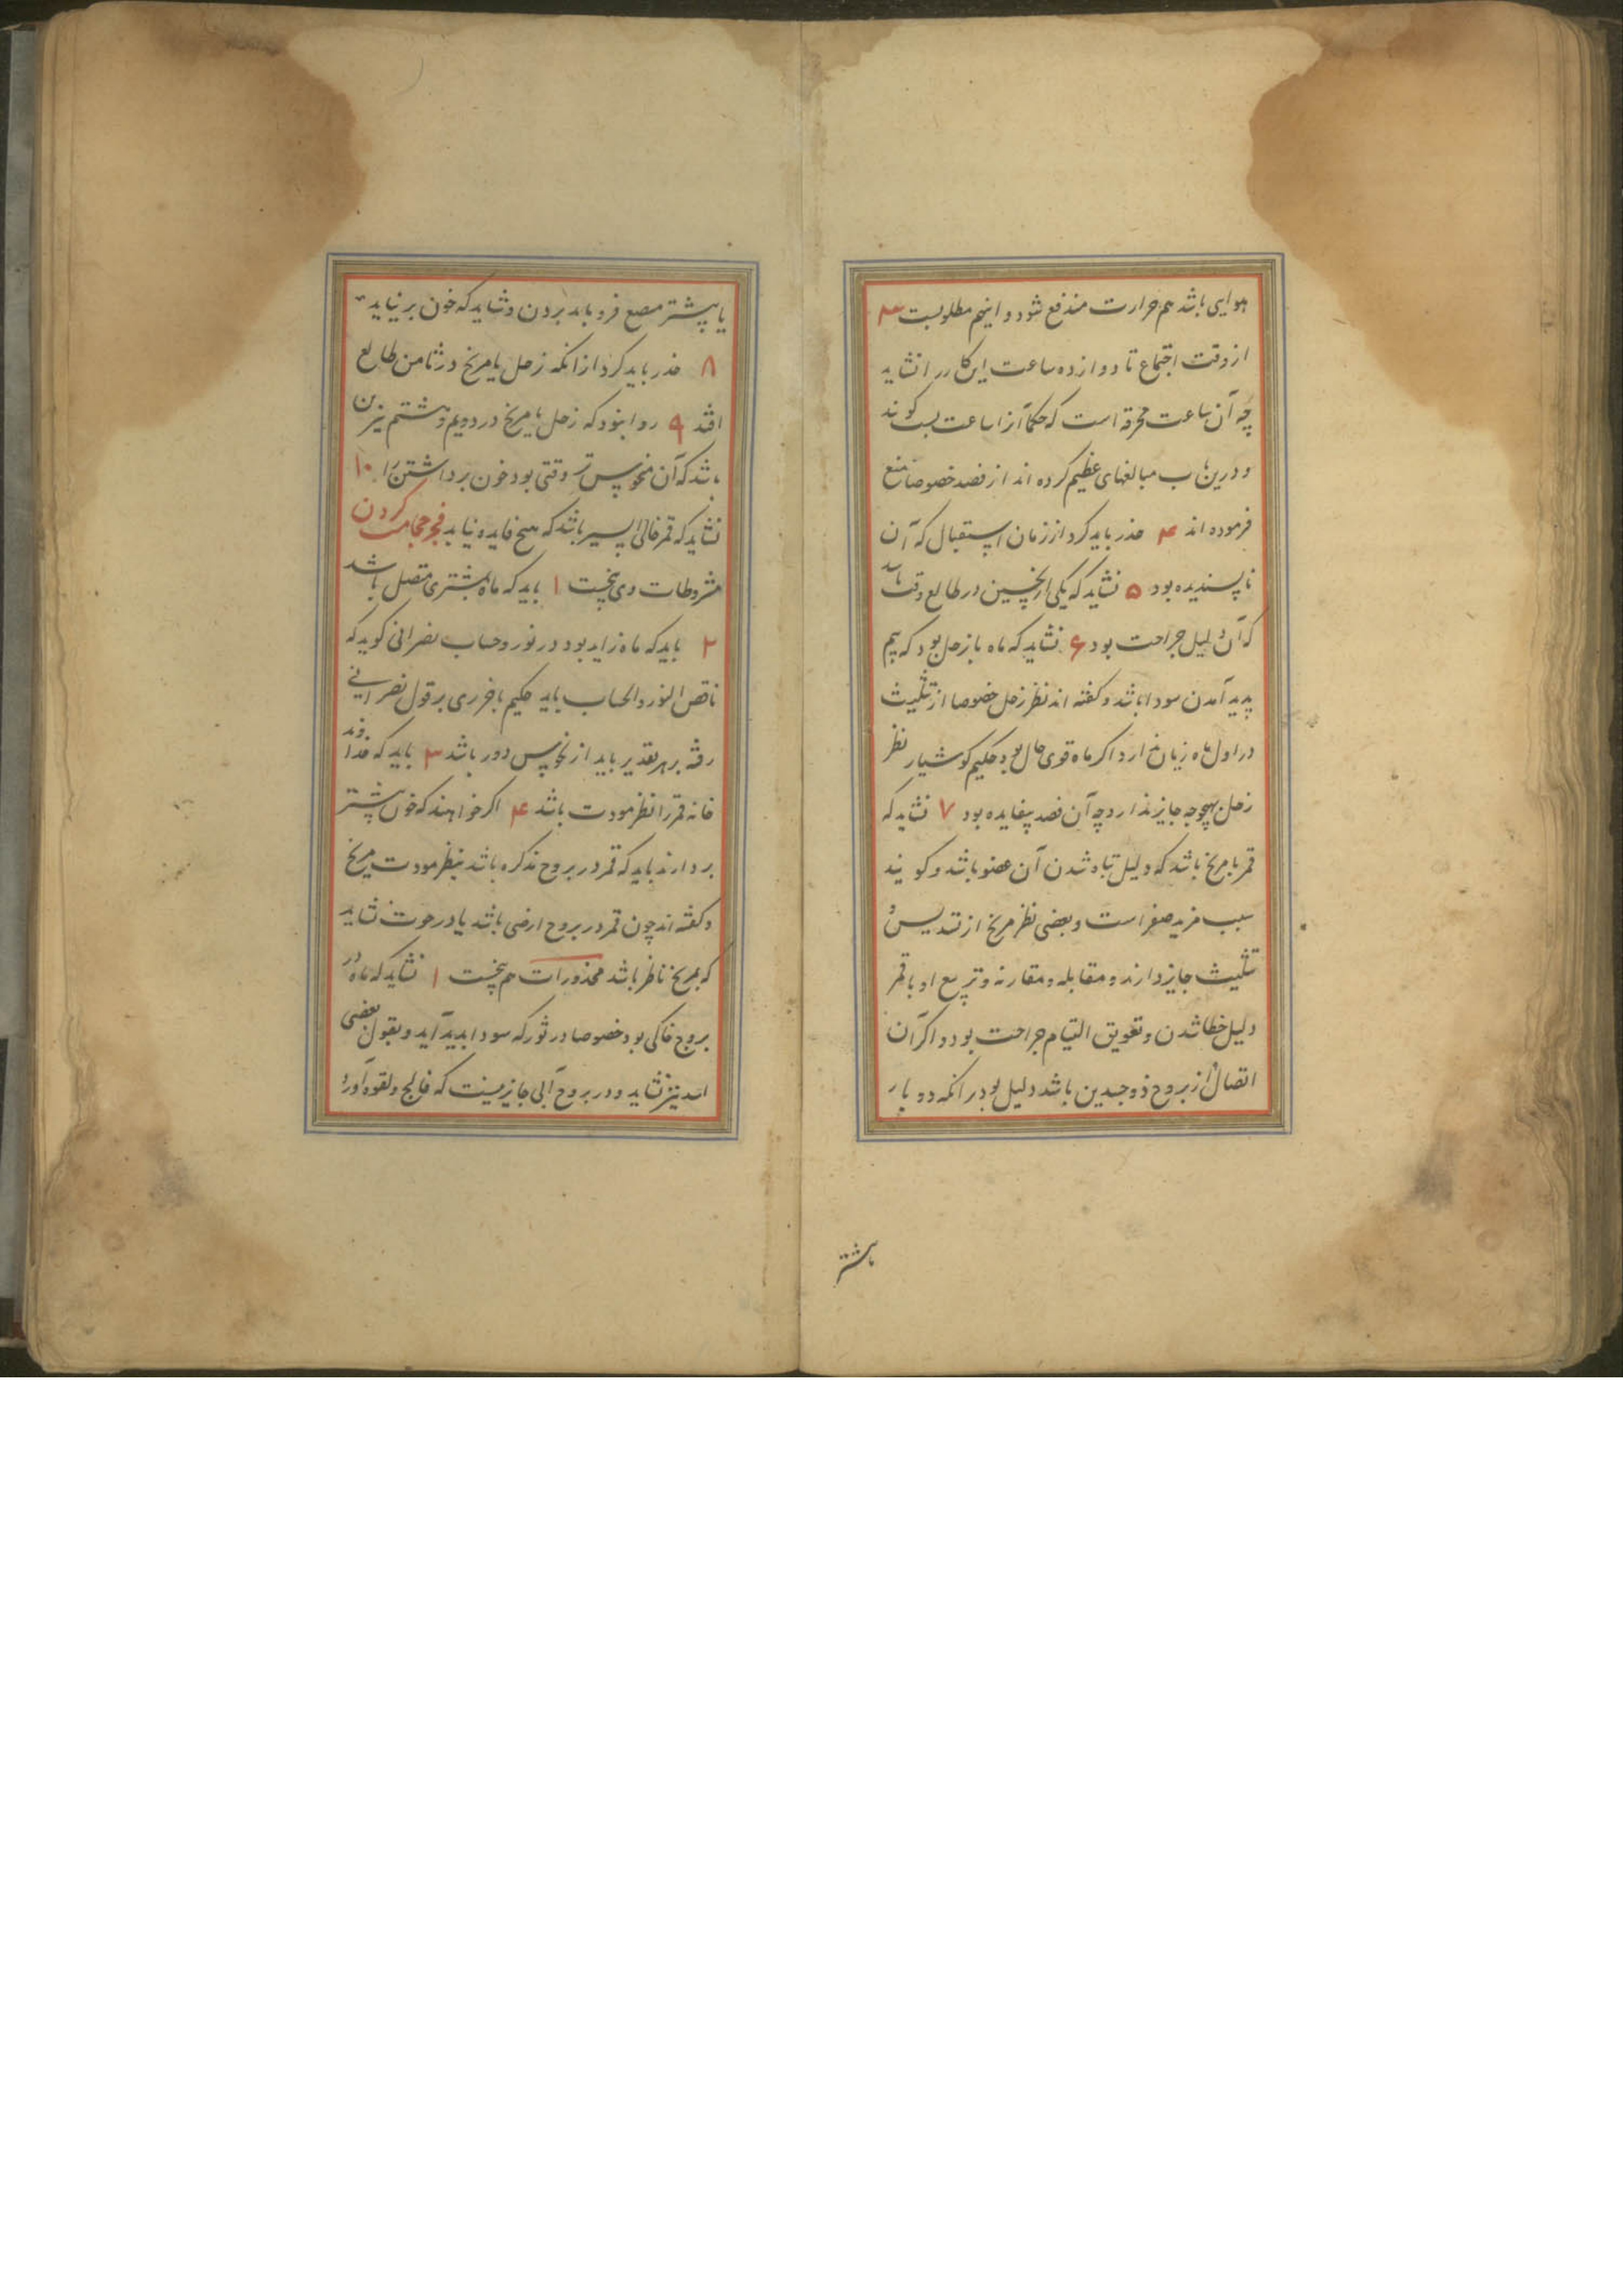 هوایی باشد هم حرارت مندفع شود و اینهم مطلوبست ۳
از وقت اجتماع تا دوازده ساعت این کار را نشاید
چه آن ساعت محرقه است که حکما آنرا ساعت بست گویند
و درین باب مبالغهای عظیم کرده اند از فصد خصوصا منع
فرموده اند ۴ حذر باید کرد از زمان استقبال که آن
ناپسندیده بود ۵ نشاید که یکی از نحسین در طالع وقت باشد
که آن دلیل جراحت بود ۶ نشاید که ماه با زحل بود که بیم
پدید آمدن سودا باشد و گفته اند نظر زحل خصوصا از تثلیث
در اول ماه زیان ندارد اگر ماه قوی حال بود و حکیم کوشیار نظر
زحل بهیچوجه جایز ندارد چه آن فصد بیفایده بود ۷ نشاید که
قمر با مریخ باشد که دلیل تباه شدن آن عضو باشد و گویند
سبب مزید صفراست و بعضی نظر مریخ از تسدیس و
تثلیث جایز دارند و مقابله و مقارنه و تربیع او با قمر
دلیل خطا شدن و تعویق التیام جراحت بود و اگر آن
اتصال از بروج ذوجسدین باشد دلیل بود برانکه دو بار
یا بیشتر مبضع فرو باید بردن و شاید که خون بر نیاید
۸ حذر باید کرد ازانکه زحل یا مریخ در ثامن طالع
افتد ۹ روا نبود که زحل یا مریخ در دویم و هشتم نیزین
باشد که آن منحوس تر وقتی بود خون برداشتن را ۱۰
نشاید که قمر خالی السیر باشد که هیچ فایده نیابد فجر حجامت کردن
مشروطات وی پنجست ۱ باید که ماه بمشتری متصل باشد
۲ باید که ماه زاید بود در نور و حساب نصرانی گوید که
ناقص النور والحساب باید حکیم باخرزی بر قول نصرانی
رفته بر هر تقدیر باید از نحوس دور باشد ۳ باید که خداوند
خانه قمر را نظر مودت باشد ۴ اگر خواهند که خون بیشتر
بردارند باید که قمر در بروج مذکره باشد بنظر مودت مریخ
و گفته اند چون قمر در بروج ارضی باشد یا در حوت نشاید
که بمریخ ناظر باشد محذورات هم پنجست ۱ نشاید که ماه در
بروج خاکی بود خصوصا در ثور که سودا پدید آید و بقول بعضی
اسد نیز نشاید و در بروج آبی جایز نیست که فالج و لقوه آورد
یا بیشتر